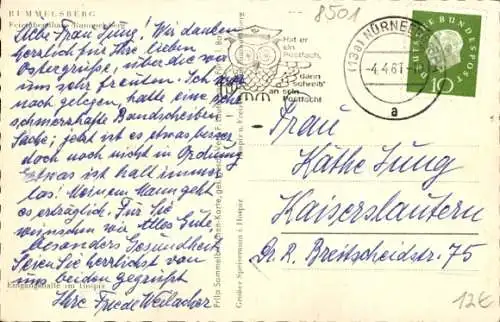 RUMMELSBERG
Liebe Frau Jung! Wir danken
herzlich für Ihre lieben
Ostergrüße, über die wir
uns sehr freuten. Ich
noch gelegen, hatte eine
schmerzhafte Bandscheiben
Sache; jetzt ist es etwas besser
doch noch nicht in Ordnung
Etwas ist halt immer
los! Meinem Mann geht
es erträglich. Für Sie
wünschen wir Alles Gute,
besonders Gesundheit
Seien Sie herzlichst von
uns beiden gegrüßt
Ihre Friede Weilacher
Eingangshalle im Hospiz
Großer Speiseraum i. Hospiz
8501
Hat er
ein
Postfach,
dann
schreib'
an sein
Postfach!
(13a) NÜRNBERG
-4.4.61
a
DEUTSCHE BUNDESPOST
10
Frau
Käthe Jung
Kaiserslautern
Dr. R. Breitscheidstr. 75
12€